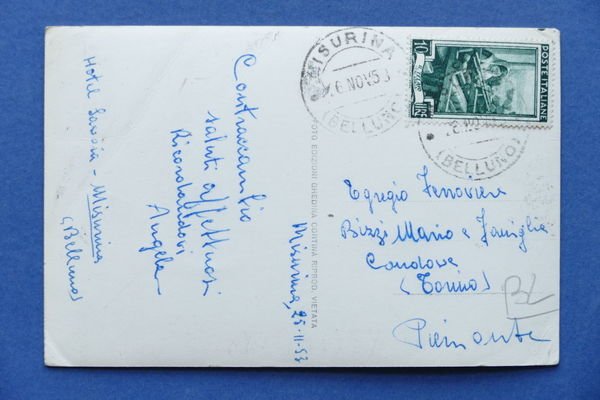 Hotel Savoia - Misurina
(Belluno)
Contraccambio
saluti affettuosi
Ricordandovi
Angela
Misurina, 25-11-53
FOTO EDIZIONI GHEDINA CORTINA RIPROD. VIETATA
MISURINA
6 NOV 53
(BELLUNO)
10
LIRE
POSTE ITALIANE
(BELLUNO)
Egregio Ferroviere
Bizzi Mario e Famiglia
Condove
(Torino)
Piemonte
BL